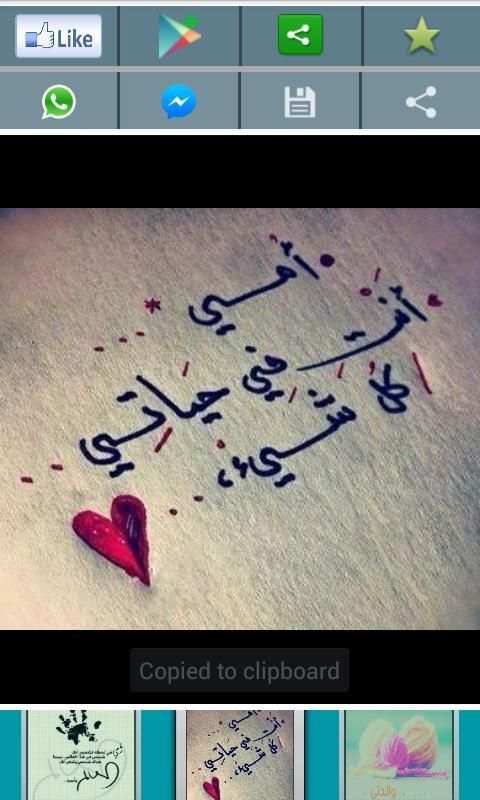 Like
أمي
أنت
كل شيء
في حياتي
Copied to clipboard